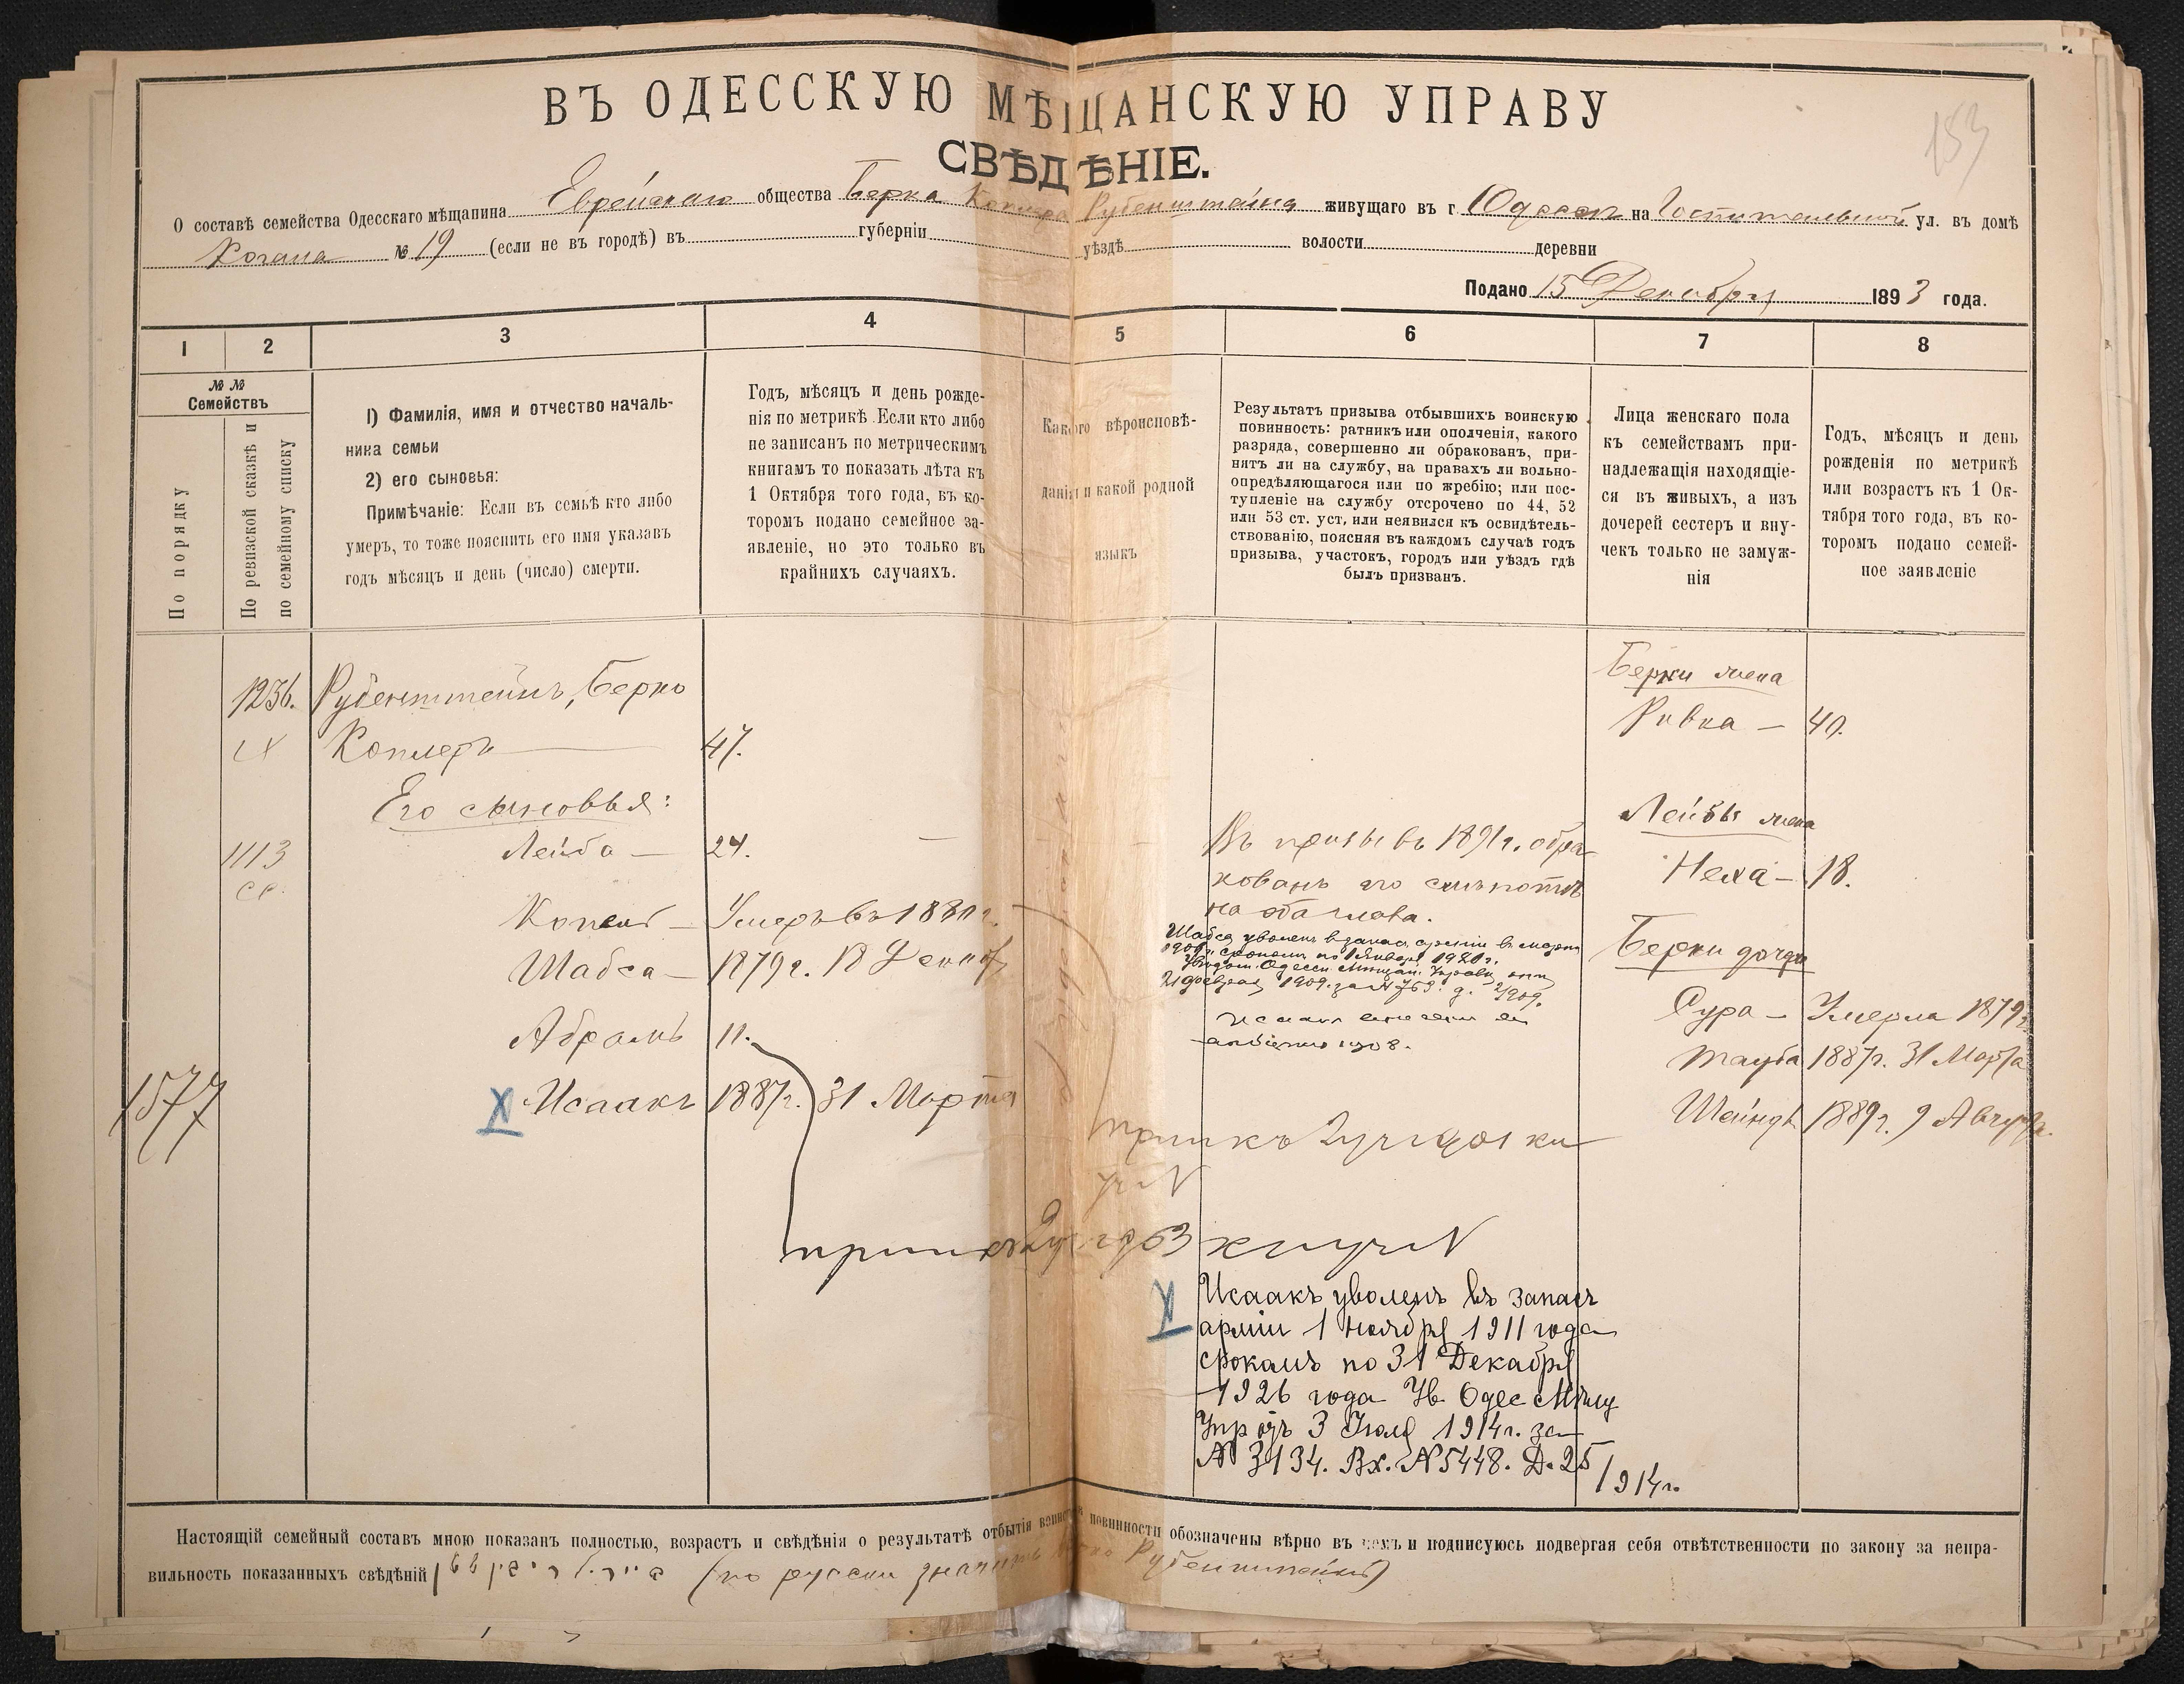 153
ВЪ ОДЕССКУЮ МѢЩАНСКУЮ УПРАВУ
СВѢДѢНІЕ.
О составѣ семейства Одесскаго мѣщанина Еврейскаго общества Берка Рубенштейна живущаго въ г. Одессѣ на Госпитальной ул. въ домѣ
Когана № 19 (если не въ городѣ) въ губерніи уѣздѣ волости деревни
Подано 15 Декабря 1893 года.
1 2 3 4 5 6 7 8
№ №
Семействъ
По порядку
По ревизской сказкѣ и
по семейному списку
1) Фамилія, имя и отчество началь-
ника семьи
2) его сыновья:
Примѣчаніе: Если въ семьѣ кто либо
умеръ, то тоже пояснить его имя указавъ
годъ мѣсяцъ и день (число) смерти.
Годъ, мѣсяцъ и день рожде-
нія по метрикѣ. Если кто либо
не записанъ по метрическимъ
книгамъ то показать лѣта къ
1 Октября того года, въ ко-
торомъ подано семейное за-
явленіе, но это только въ
крайнихъ случаяхъ.
Какого вѣроисповѣ-
данія и какой родной
языкъ
Результатъ призыва отбывшихъ воинскую
повинность: ратникъ или ополченія, какого
разряда, совершенно ли обракованъ, при-
нятъ ли на службу, на правахъ ли вольно-
опредѣляющагося или по жребію; или пос-
тупленіе на службу отсрочено по 44, 52
или 53 ст. уст. или неявился къ освидѣтель-
ствованію, поясняя въ каждомъ случаѣ годъ
призыва, участокъ, городъ или уѣздъ гдѣ
былъ призванъ.
Лица женскаго пола
къ семействамъ при-
надлежащія находящіе-
ся въ живыхъ, а изъ
дочерей сестеръ и вну-
чекъ только не замуж-
нія
Годъ, мѣсяцъ и день
рожденія по метрикѣ
или возрастъ къ 1 Ок-
тября того года, въ ко-
торомъ подано семей-
ное заявленіе
Берки жена
1236. Рубенштейнъ, Берко
Ривка — 40.
Коплеръ — 47.
Его сыновья:
Лейбы жена
1113 Лейба — 24. —
Въ призывъ 1891 г. обра
Неха — 18.
кованъ
на оба глаза.
Копель — Умеръ въ 1880 г.
Шабса уволенъ въ запас арміи въ
срокомъ по 1 Января 1920 г.
Берки дочери
Шабса — 1879 г. 18 Декаб.
Сура — Умерла 1879 г.
Абрамъ 11.
Тауба 1887 г. 31 Марта
1577
X Исаакъ 1887 г. 31 Марта
Шейндя 1889 г. 9 Августа.
X Исаакъ уволенъ въ запасъ
арміи 1 Ноября 1911 года
срокомъ по 31 Декабря
1926 года Ув. Одес Мѣщ
Упр отъ 3 Іюля 1914 г. за
№ 3134. Вх. № 5448. Д. 25/1914 г.
Настоящій семейный составъ мною показанъ полностью, возрастъ и свѣдѣнія о результатѣ отбытія воинской повинности обозначены вѣрно въ чемъ и подписуюсь подвергая себя отвѣтственности по закону за непра-
вильность показанныхъ свѣдѣній (по русски значитъ Берко Рубенштейнъ)